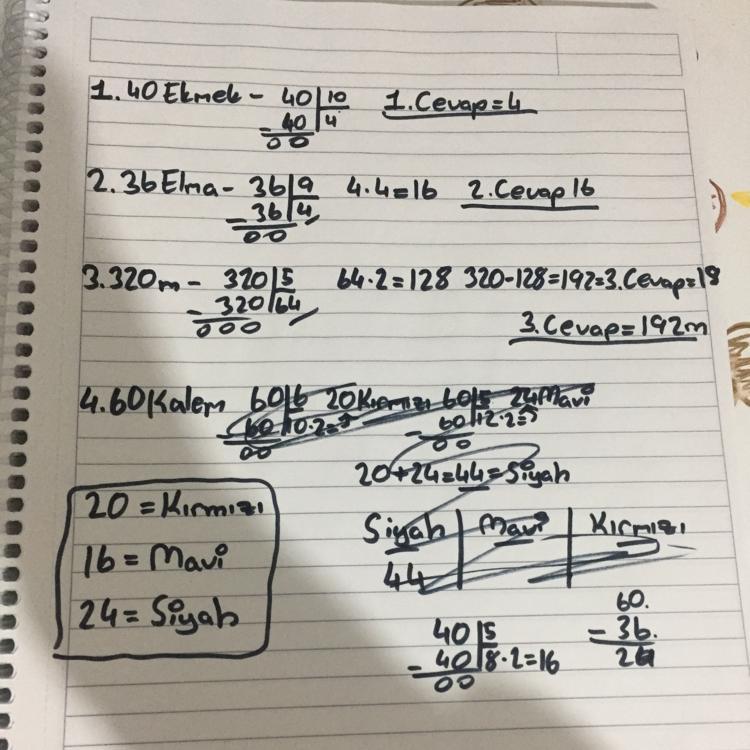 1.40 Ekmek - 40|10 1.Cevap=4
- 40|4
00
2.36 Elma - 36|9 4.4=16 2.Cevap 16
- 36|4
00
3.320m - 320|5 64.2=128 320-128=192=3.Cevap=19
- 320|64
000
3.Cevap=192m
4.60 Kalem 60|6 20 Kırmızı 60|5 24 Mavi
- 60|10.2= - 60|12.2=
00 00
20+24=44=Siyah
20 = Kırmızı
16 = Mavi
24 = Siyah
Siyah | Mavi | Kırmızı
44
40|5
- 40|8.2=16
00
60.
- 36.
24